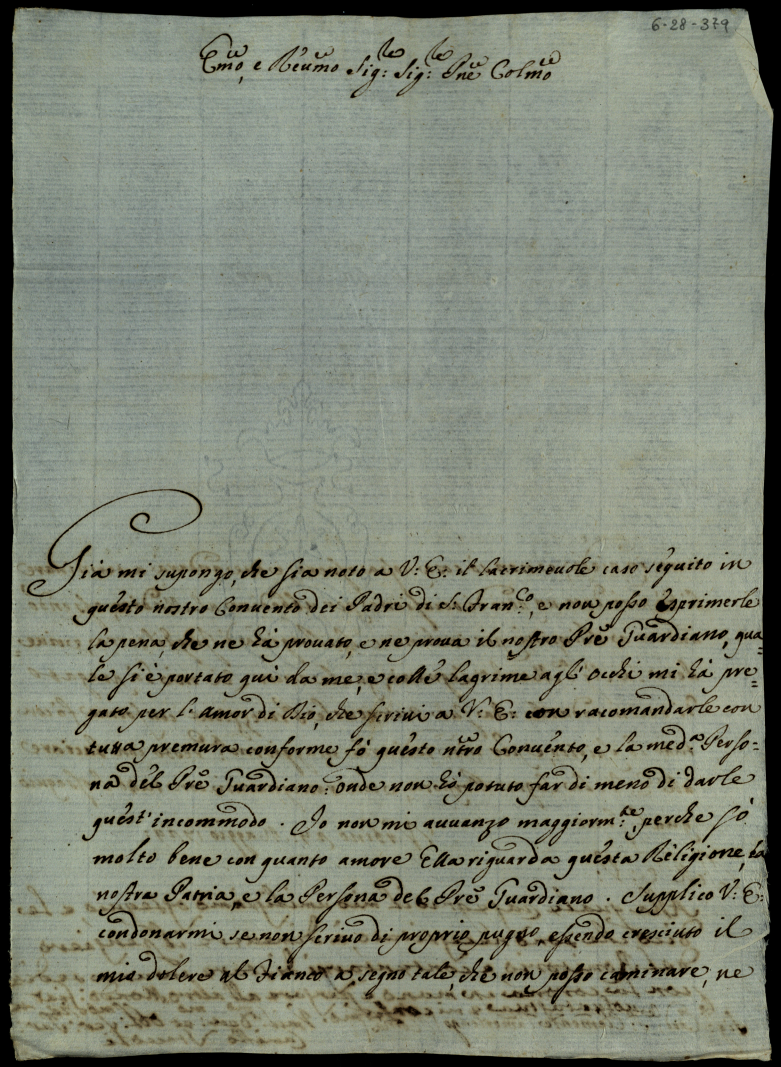 6-28-379
Emo, e Reumo Sig:re Sig:re Pne Colmo
Già mi supongo, che sia noto a V: E: il lacrimevole caso séquito in
questo nostro Convento dei Padri di S: Fran:co, e non posso esprimerle
la pena, che ne hà provato, e ne prova il nostro Pre Guardiano, qua=
le si è portato quì da me, e colle lagrime agl' occhi mi hà pre=
gato per l' amor di Dio, che scrivi a V: E: con racomandarle con
tutta premura conforme fò questo ntro Convento, e la med:a Perso=
na del Pre Guardiano: onde non hò potuto far di meno di darle
quest' incommodo. Io non mi avvanzo maggiorm:te, perche sò
molto bene con quanto amore Ella riguarda questa Religione, la
nostra Patria, e la Persona del Pre Guardiano. Supplico V: E:
condonarmi se non scrivo di proprio pugno, essendo cresciuto il
mio dolore al Fianco a segno tale, che non posso caminare, ne